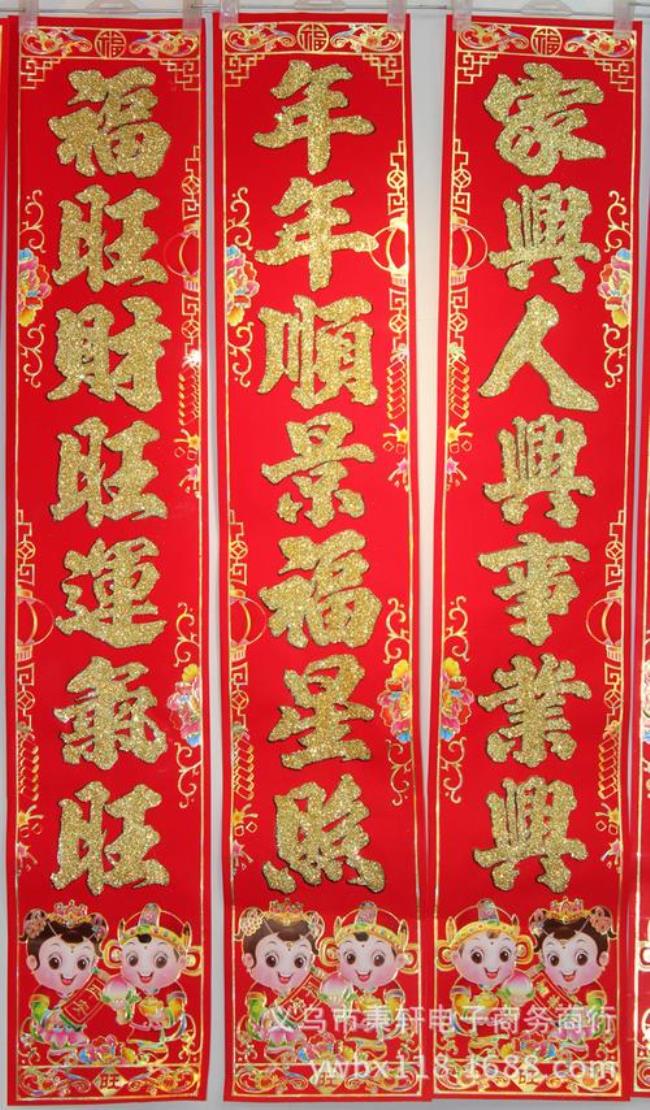 福
福
家興人興事業興
年年順景福星照
福旺財旺運氣旺
旺
旺
义乌市秉轩电子商务商行
ywbx118.1688.com